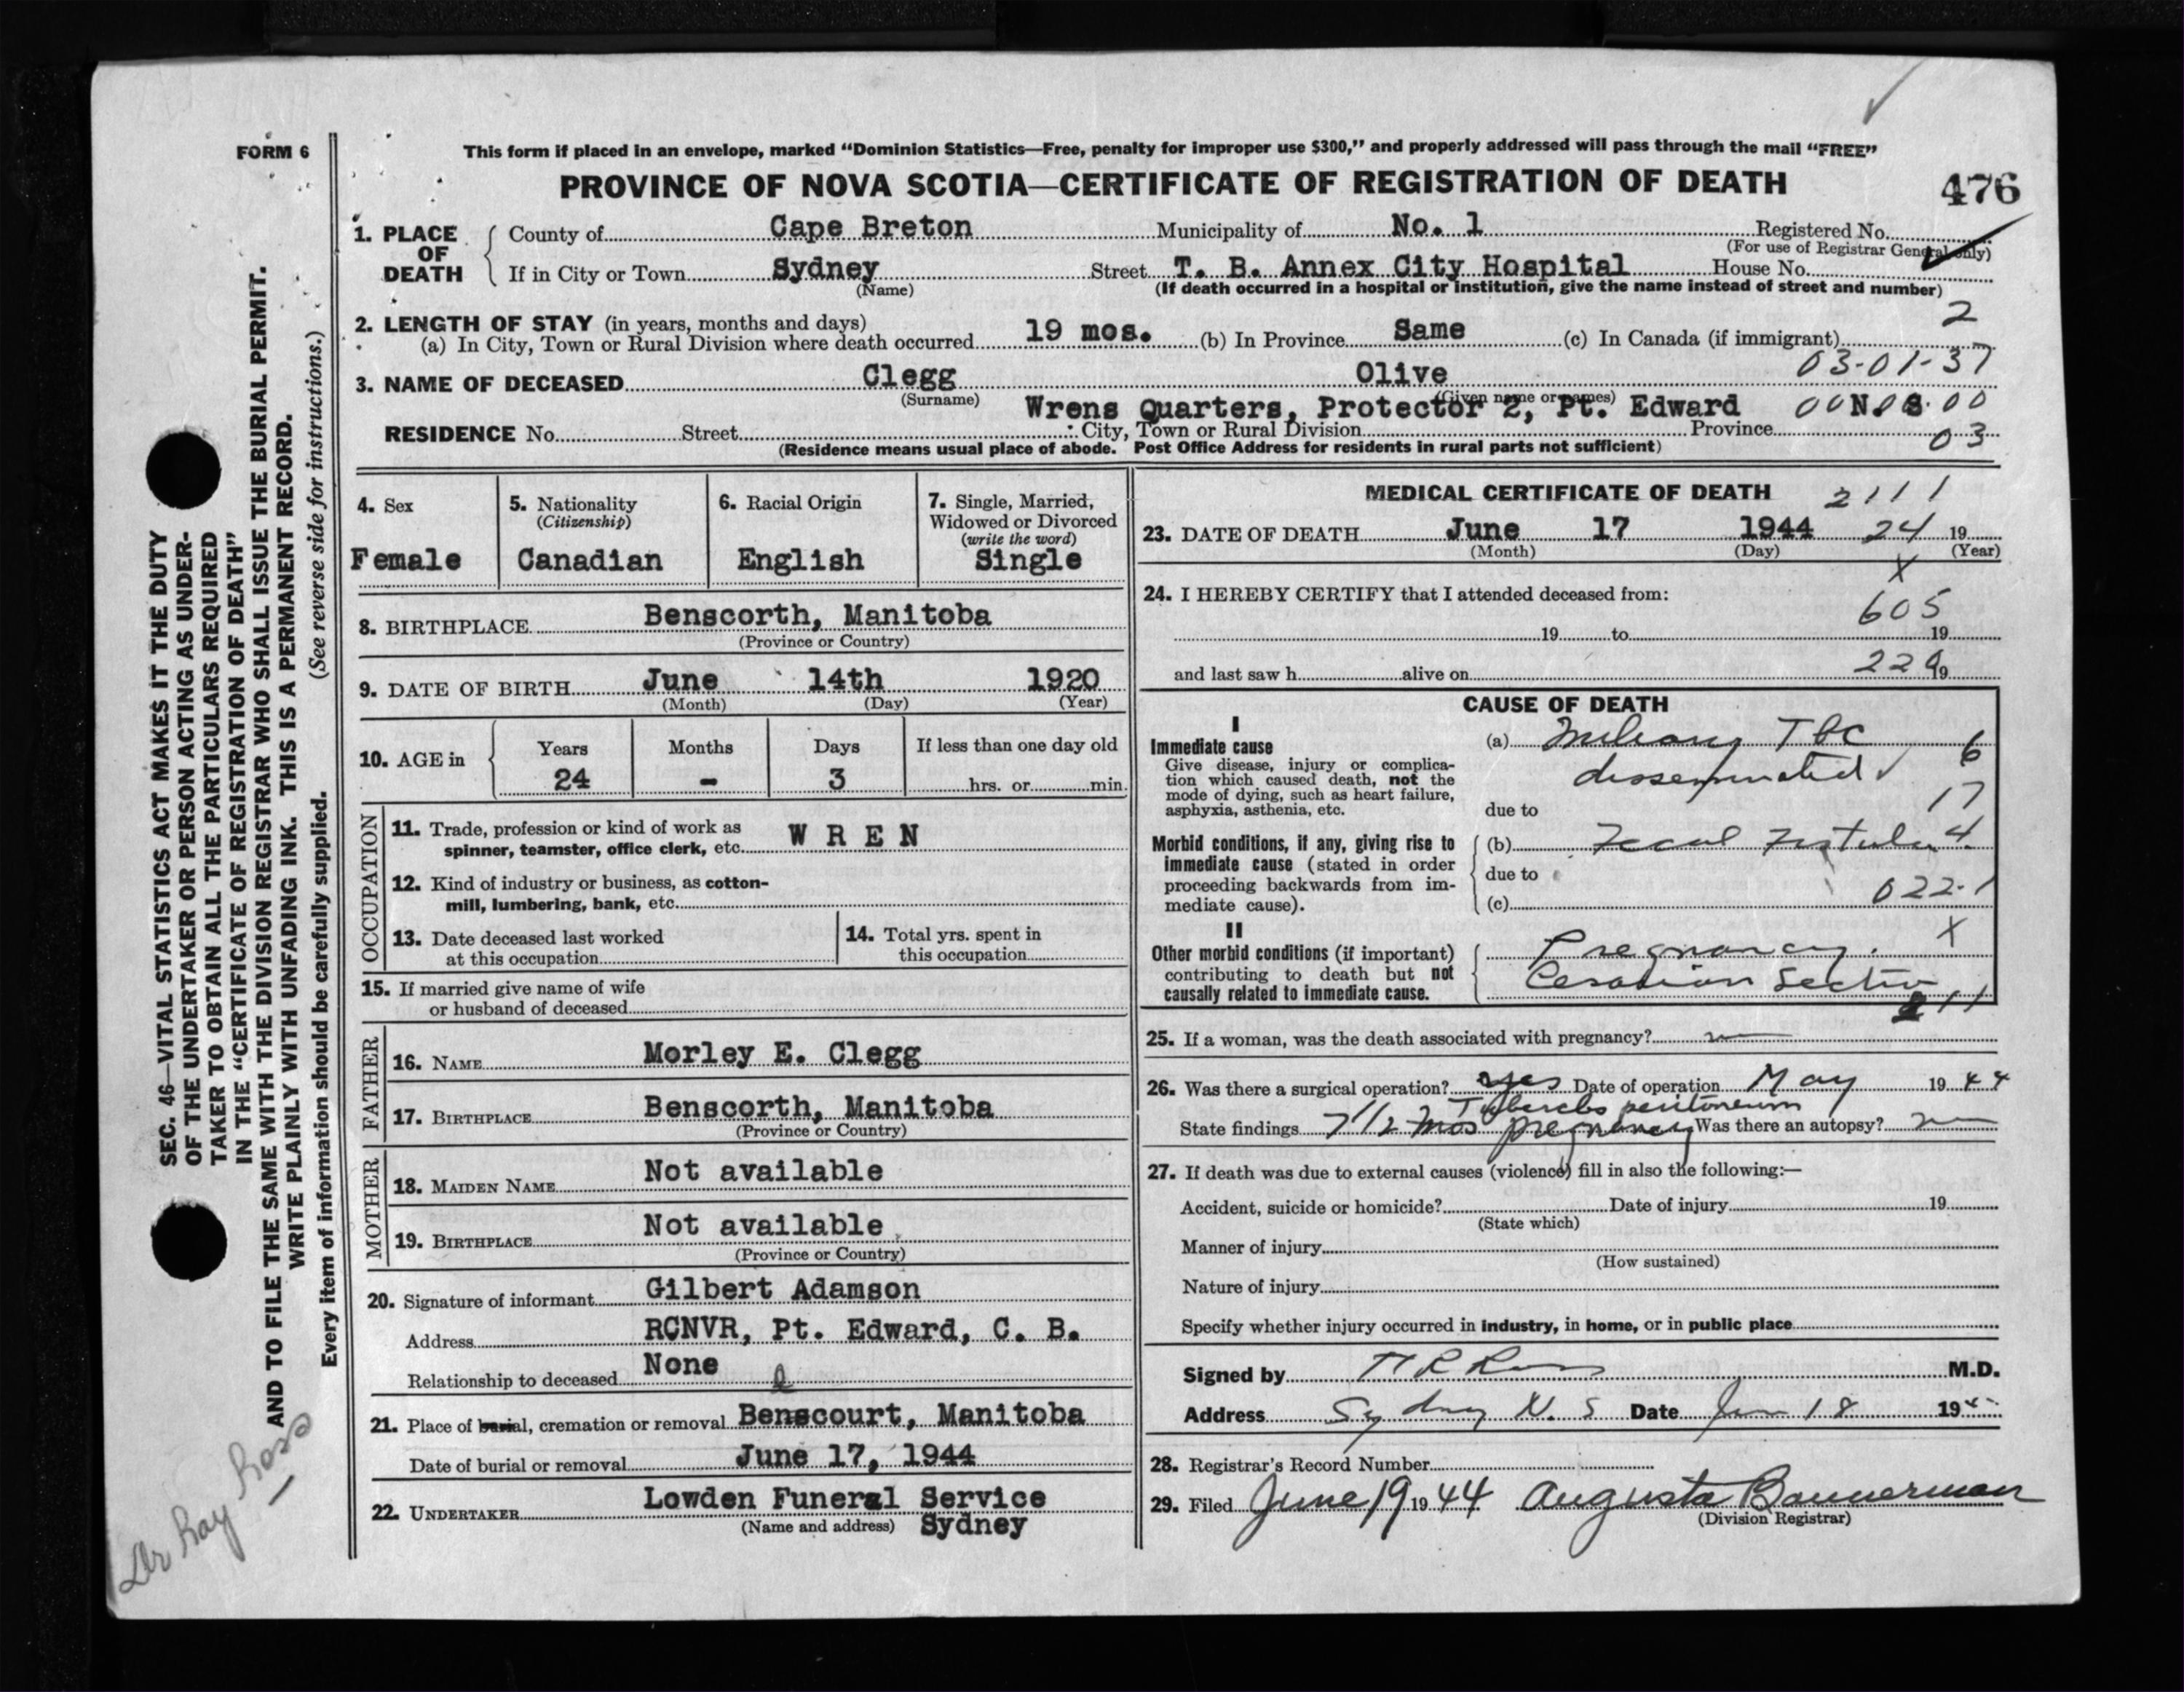 FORM 6
This form if placed in an envelope, marked “Dominion Statistics—Free, penalty for improper use $300,” and properly addressed will pass through the mail “FREE”
PROVINCE OF NOVA SCOTIA—CERTIFICATE OF REGISTRATION OF DEATH
476
1. PLACE OF DEATH
County of Cape Breton Municipality of No. 1 Registered No.
(For use of Registrar General only)
If in City or Town Sydney Street T. B. Annex City Hospital House No.
(Name) (If death occurred in a hospital or institution, give the name instead of street and number)
2
2. LENGTH OF STAY (in years, months and days)
(a) In City, Town or Rural Division where death occurred 19 mos. (b) In Province Same (c) In Canada (if immigrant)
03-01-37
3. NAME OF DECEASED Clegg Olive
(Surname) (Given name or names)
Wrens Quarters, Protector 2, Pt. Edward N. S.
RESIDENCE No. Street City, Town or Rural Division Province
03
(Residence means usual place of abode. Post Office Address for residents in rural parts not sufficient)
4. Sex
Female
5. Nationality
(Citizenship)
Canadian
6. Racial Origin
English
7. Single, Married,
Widowed or Divorced
(write the word)
Single
8. BIRTHPLACE Benscorth, Manitoba
(Province or Country)
9. DATE OF BIRTH June 14th 1920
(Month) (Day) (Year)
10. AGE in
Years Months Days If less than one day old
24 - 3 hrs. or min.
OCCUPATION
11. Trade, profession or kind of work as
spinner, teamster, office clerk, etc. W R E N
12. Kind of industry or business, as cotton-
mill, lumbering, bank, etc.
13. Date deceased last worked
at this occupation
14. Total yrs. spent in
this occupation
15. If married give name of wife
or husband of deceased
FATHER
16. NAME Morley E. Clegg
17. BIRTHPLACE Benscorth, Manitoba
(Province or Country)
MOTHER
18. MAIDEN NAME Not available
19. BIRTHPLACE Not available
(Province or Country)
20. Signature of informant Gilbert Adamson
Address RCNVR, Pt. Edward, C. B.
Relationship to deceased None
21. Place of burial, cremation or removal Benscourt, Manitoba
Date of burial or removal June 17, 1944
22. UNDERTAKER Lowden Funeral Service
(Name and address) Sydney
MEDICAL CERTIFICATE OF DEATH
2111
23. DATE OF DEATH June 17 1944 24 19
(Month) (Day) (Year)
X
24. I HEREBY CERTIFY that I attended deceased from:
605
19 to 19
and last saw h alive on 19
CAUSE OF DEATH
I
Immediate cause
Give disease, injury or complica-
tion which caused death, not the
mode of dying, such as heart failure,
asphyxia, asthenia, etc.
(a) Miliary TBC 6
disseminated
17
due to
Morbid conditions, if any, giving rise to
immediate cause (stated in order
proceeding backwards from im-
mediate cause).
(b) Fecal Fistula 4.
due to
022-1
(c)
II
Other morbid conditions (if important)
contributing to death but not
causally related to immediate cause.
Pregnancy. X
Cesarian Section
11
25. If a woman, was the death associated with pregnancy?
26. Was there a surgical operation? yes Date of operation May 19 44
Tubercles peritoneum
State findings 7 1/2 mos pregnancy Was there an autopsy? no
27. If death was due to external causes (violence) fill in also the following:—
Accident, suicide or homicide? Date of injury 19
(State which)
Manner of injury
(How sustained)
Nature of injury
Specify whether injury occurred in industry, in home, or in public place
Signed by H R Ross M.D.
Address Sydney N. S Date Jun 18 19
28. Registrar's Record Number
29. Filed June 19 19 44 Augusta Bannerman
(Division Registrar)
SEC. 46—VITAL STATISTICS ACT MAKES IT THE DUTY
OF THE UNDERTAKER OR PERSON ACTING AS UNDER-
TAKER TO OBTAIN ALL THE PARTICULARS REQUIRED
IN THE “CERTIFICATE OF REGISTRATION OF DEATH”
AND TO FILE THE SAME WITH THE DIVISION REGISTRAR WHO SHALL ISSUE THE BURIAL PERMIT.
WRITE PLAINLY WITH UNFADING INK. THIS IS A PERMANENT RECORD.
Every item of information should be carefully supplied. (See reverse side for instructions.)
Dr Ray Ross